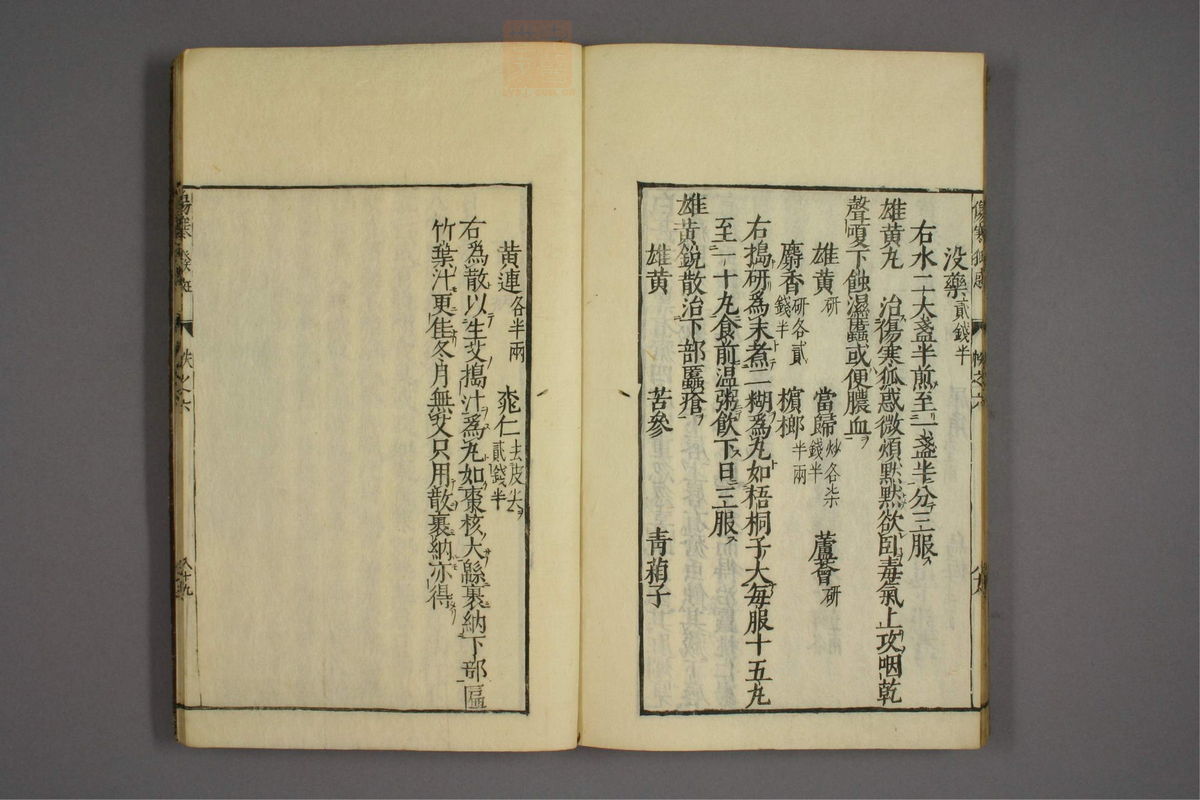 没藥貳錢半
右水二大盞半煎至一盞半分三服
雄黄丸 治傷寒狐惑微煩默默欲卧毒氣上攻咽乾
聲嗄下蝕濕䘌或便膿血
雄黄研 當歸炒各柒錢半 蘆薈研
麝香研各貳錢半 檳榔半兩
右搗研爲末煮二糊爲丸如梧桐子大每服十五丸
至二十丸食前温粥飲下日三服
雄黄銳散治下部䘌瘡
雄黄 苦參 青葙子
黄連各半兩 桃仁去皮尖貳錢半
右爲散以生艾搗汁爲丸如棗核大緜裹納下部匾
竹葉汁更佳冬月無艾只用散裹納亦得
傷寒狐惑 帙之六
傷寒發斑 帙之六 八十九